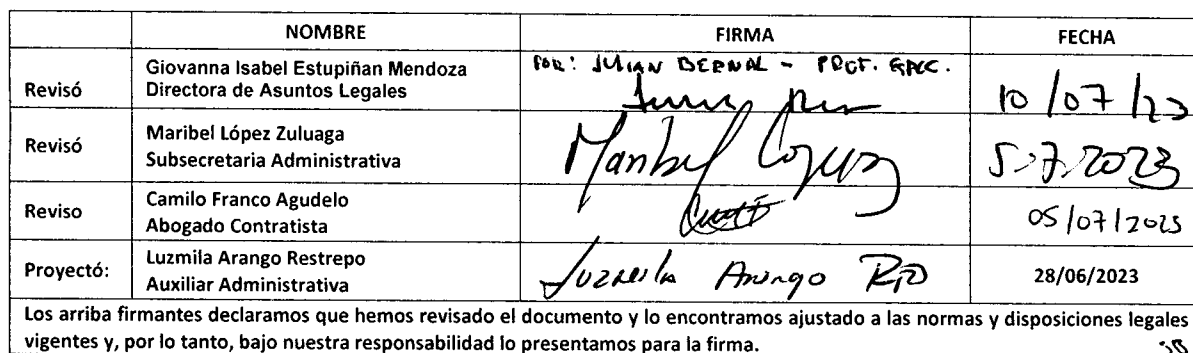 NOMBRE FIRMA FECHA
Revisó Giovanna Isabel Estupiñan Mendoza
Directora de Asuntos Legales
POR: JULIAN BERNAL - 
10/07/23
Revisó Maribel López Zuluaga
Subsecretaria Administrativa
Maribel López
5-7-2023
Reviso Camilo Franco Agudelo
Abogado Contratista
05/07/2023
Proyectó: Luzmila Arango Restrepo
Auxiliar Administrativa
Luzmila Arango
28/06/2023
Los arriba firmantes declaramos que hemos revisado el documento y lo encontramos ajustado a las normas y disposiciones legales
vigentes y, por lo tanto, bajo nuestra responsabilidad lo presentamos para la firma.